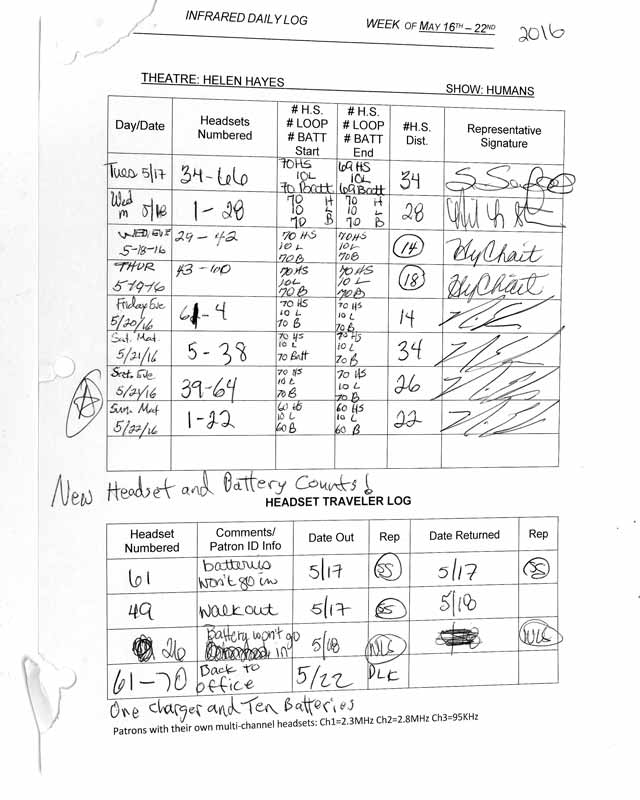 INFRARED DAILY LOG WEEK OF MAY 16TH – 22ND 2016
THEATRE: HELEN HAYES SHOW: HUMANS
Day/Date Headsets Numbered # H.S. # LOOP # BATT Start # H.S. # LOOP # BATT End #H.S. Dist. Representative Signature
Tues 5/17 34-66 70HS 10L 70 Batt 69HS 10L 69 Batt 34
Wed m 5/18 1-28 70 H 10 L 70 B 70 H 10 L 70 B 28
WED, EVE 5-18-16 29-42 70 HS 10 L 70B 70HS 10L 70B 14 HyChait
THUR 5-19-16 43-100 70HS 10L 70B 70HS 10L 70B 18 HyChait
Friday Eve 5/20/16 61-4 70 HS 10 L 70 B 70 HS 10 L 70B 14
Sat. Mat 5/21/16 5-38 70 HS 10 L 70 Batt 70 HS 10 L 70 B 34
Sat. Eve 5/21/16 39-64 70 HS 10 L 70B 70 HS 10 L 70 B 26
Sun. Mat 5/22/16 1-22 60 HS 10 L 60 B 60 HS 10 L 60 B 22
New Headset and Battery Counts!
HEADSET TRAVELER LOG
Headset Numbered Comments/ Patron ID Info Date Out Rep Date Returned Rep
61 batteries won't go in 5/17 SS 5/17 SS
49 walkout 5/17 SS 5/18
26 Battery won't go in 5/18 NLS NLS
61-70 Back to office 5/22 DLK
One Charger and Ten Batteries
Patrons with their own multi-channel headsets: Ch1=2.3MHz Ch2=2.8MHz Ch3=95KHz